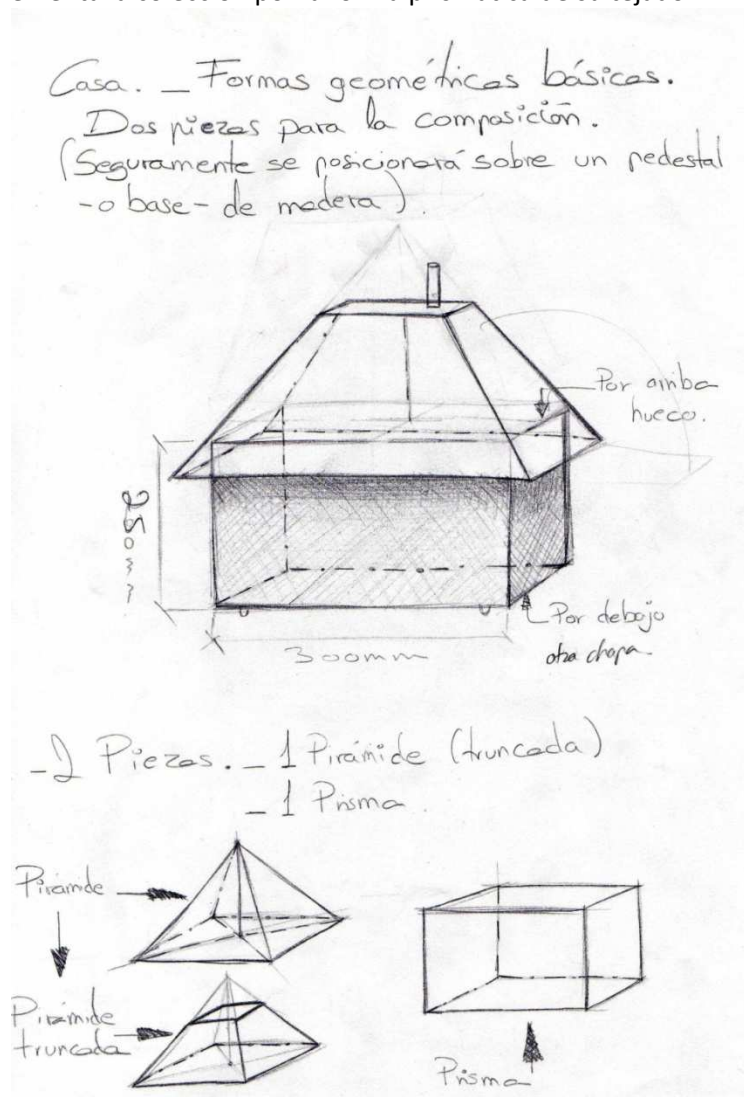 Casa. _ Formas geométricas básicas.
Dos piezas para la composición.
(Seguramente se posicionará sobre un pedestal
-o base- de madera).
Por arriba
hueco.
250mm
300mm
Por debajo
otra chapa
-2 Piezas. _ 1 Pirámide (truncada)
_ 1 Prisma.
Pirámide
Pirámide
truncada
Prisma